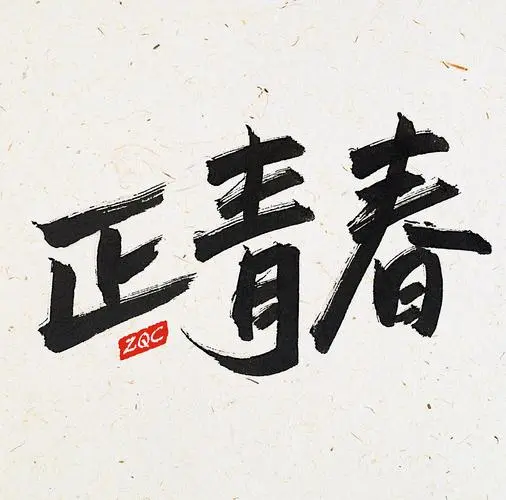 正青春
ZQC